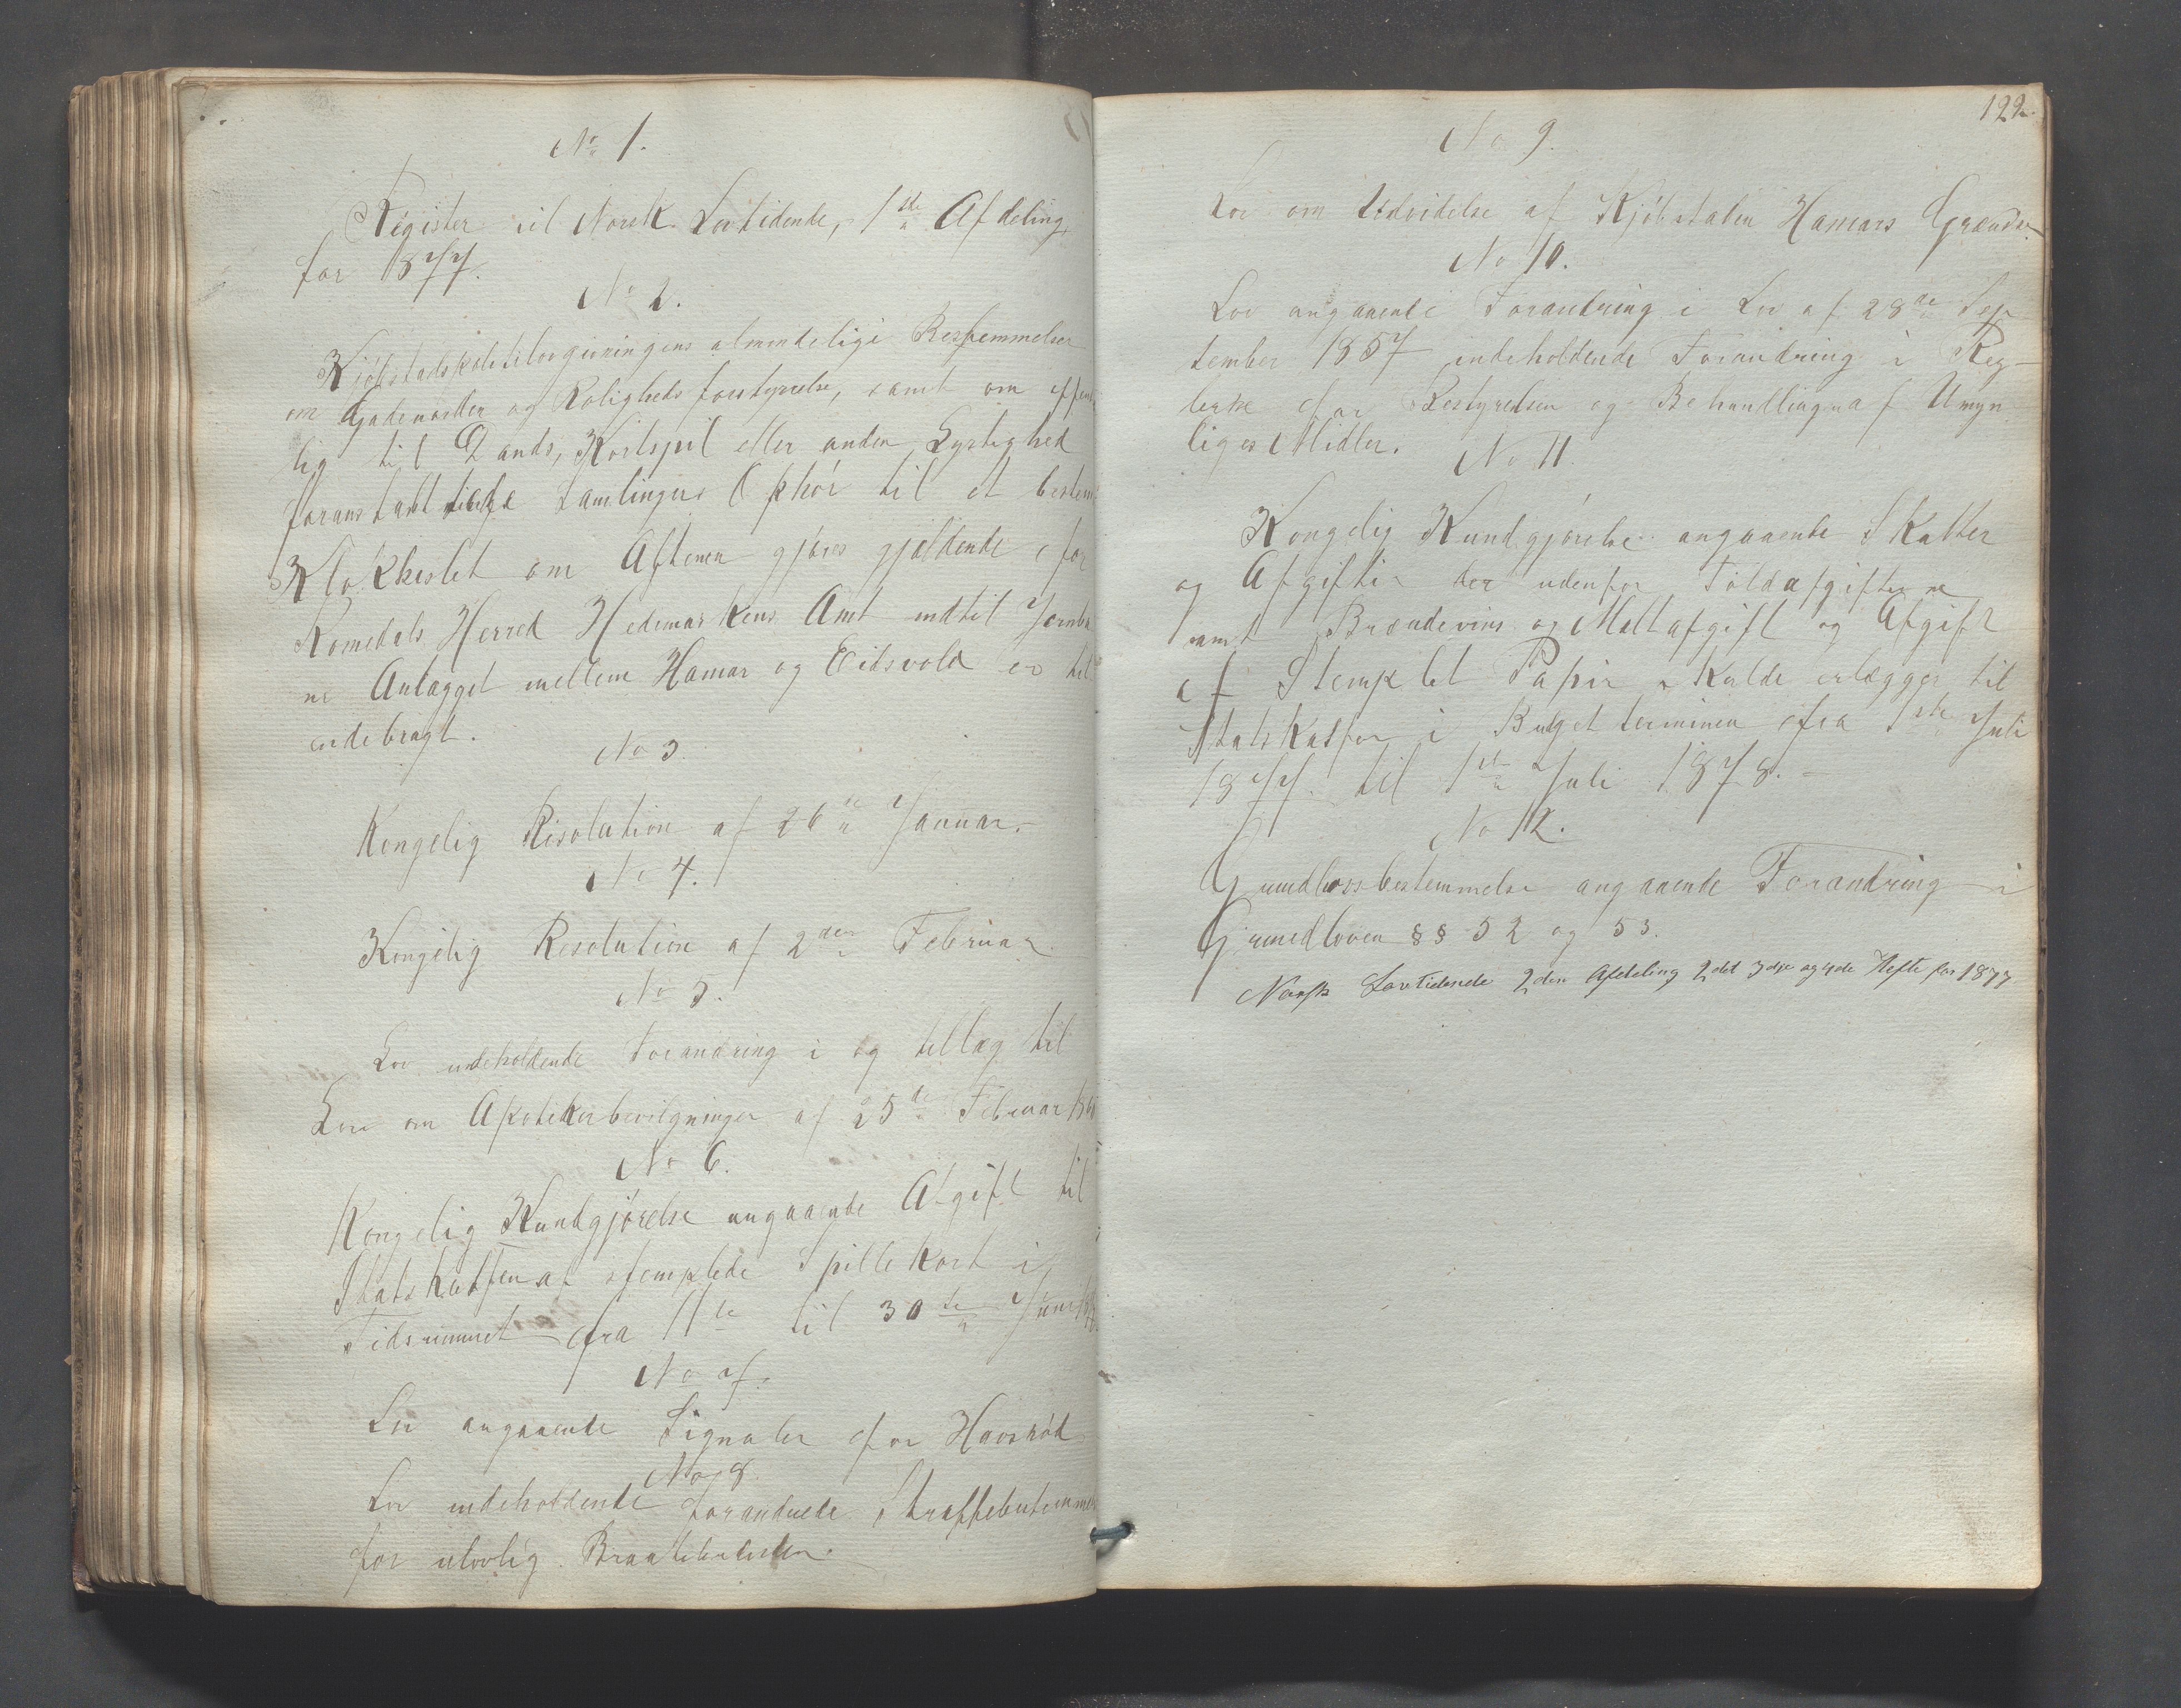 No 1.
Register til Norsk Lovtidende, 1ste Afdeling,
for 1877.
No 2.
Kjøbstadskolelovgivningens almindelige Bestemmelser
om Gadeuorden og Rolighedsforstyrrelse, samt om offent
lig til Dands, Kortspil eller anden Lystighed
foranstaltede Samlingers Ophør til et bestem
Klokkeslet om Aftenen gjøres gjældende for
Romedals Herred Hedemarkens Amt indtil Jernba
ne Anlægget mellem Hamar og Eidsvold er til
endebragt.
No 3
Kongelig Resolution af 26de Januar.
No 4.
Kongelig Resolution af 2den Februar.
No 5.
Lov indeholdende Forandring i og tillæg til
Lov om Apothekerbevilgninger af 25de Februar
No 6.
Kongelig Kundgjørelse angaaende Afgift til
Statskassen af stemplede Spillekort i
Tidsrummet fra 1ste til 30te Juni
No 7.
Lov angaaende Signaler for Havsnød
No 8.
Lov indeholdende forandrede Straffebestemmel
for ulovlig
122.
No 9.
Lov om Udvidelse af Kjøbstaden Hamars Grændse
No 10.
Lov angaaende Forandring i Lov af 28de Sep
tember 1857 indeholdende Forandring i Reg-
lerne for Bestyrelsen og Behandlingen af Umyn
liges Midler.
No 11.
Kongelig Kundgjørelse angaaende Skatter
og Afgifter der udenfor Toldafgifterne
samt Brændevins og Maltafgift og Afgift
af Stemplet Papir skulde erlægges til
Statskassen i Budgetterminen fra 1ste Juli
1877. til 1ste Juli 1878. -
No 12.
Grundlovsbestemmelse angaaende Forandring i
Grundloven §§ 52 og 53.
Norsk Lovtidende 2den Afdeling 2det 3die og 4de Hefte for 1877